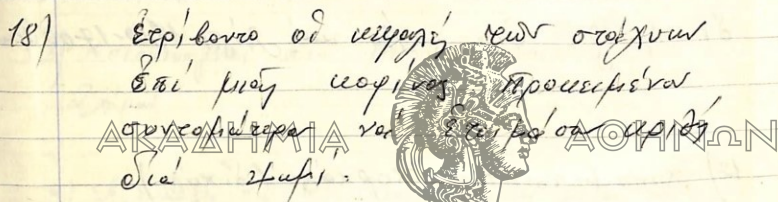 18) ἐτρίβοντο οἱ κεφαλές τῶν σταχυων
ἐπί μιᾶς κοφίνας προκειμένου
συντομώτερα νά ἑτοιμάσουν κριθή
διά ψωμί.
ΑΚΑΔΗΜΙΑ ΑΘΗΝΩΝ